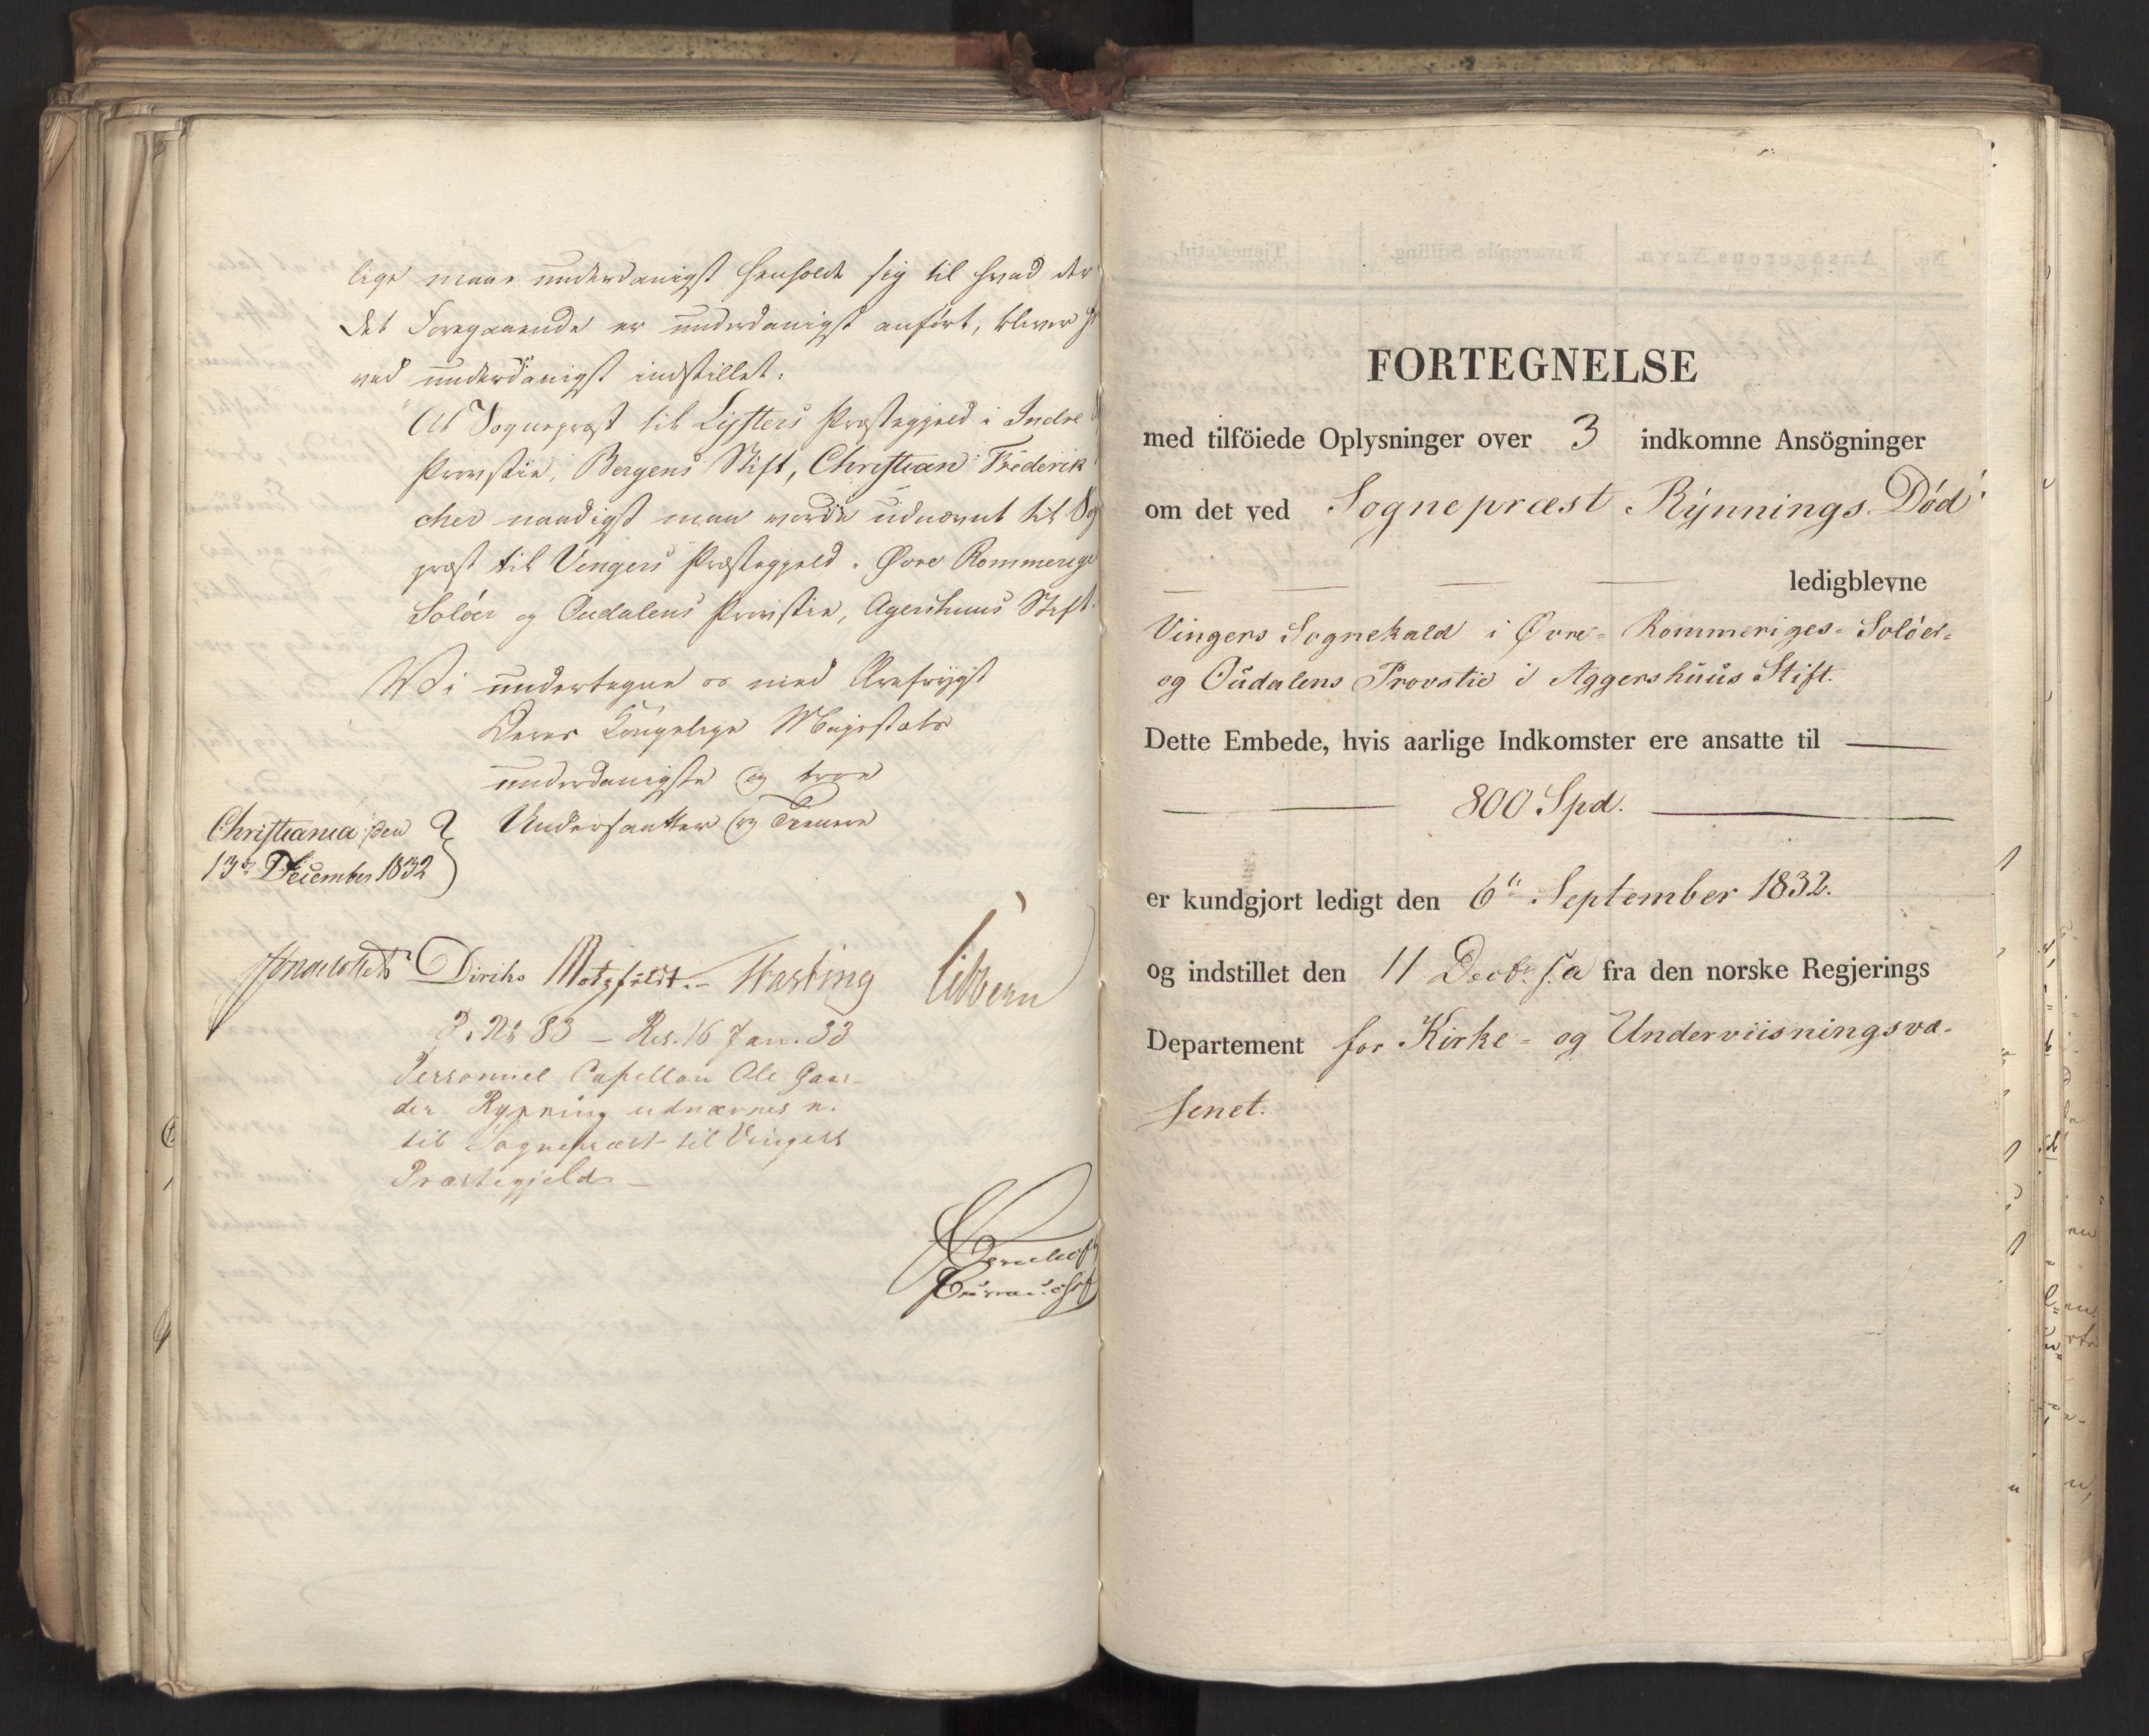 lige maae underdanigst henholde sig til hvad der
det Foregaaende er underdanigst anført, bliver
ved underdanigst indstillet:
At Sognepræst til Lysters Præstegjeld i Indre
Provstie, Bergens Stift, Christian Frederik
cher naadigst maa vorde udnævnt til Sog
præst til Vingers Præstegjeld i Øvre Rommerige
Soløer og Oudalens Provstie, Agershuus Stift.
Vi undertegne os med Ærefrygt
Deres Kongelige Majestæts
underdanigste og troe
Undersaatter og Tienere
Christiania den
13de December 1832
Diriks Motzfeldt. Fasting Sibbern
P. No 83 – Res. 16 Jan. 33
Personnel Capellan Ole Gaar-
der Rynning udnævnes n.
til Sognepræst til Vingers
Præstegjeld –
Bureauchef
FORTEGNELSE
med tilföiede Oplysninger over 3 indkomne Ansögninger
om det ved Sognepræst Rynnings Død
ledigblevne
Vingers Sognekald i Øvre- Rommeriges- Soløer-
og Oudalens Provstie i Aggershuus Stift.
Dette Embede, hvis aarlige Indkomster ere ansatte til
800 Spd.
er kundgjort ledigt den 6te September 1832.
og indstillet den 11 Decbr. s. a fra den norske Regjerings
Departement for Kirke- og Underviisningsvæ-
senet.